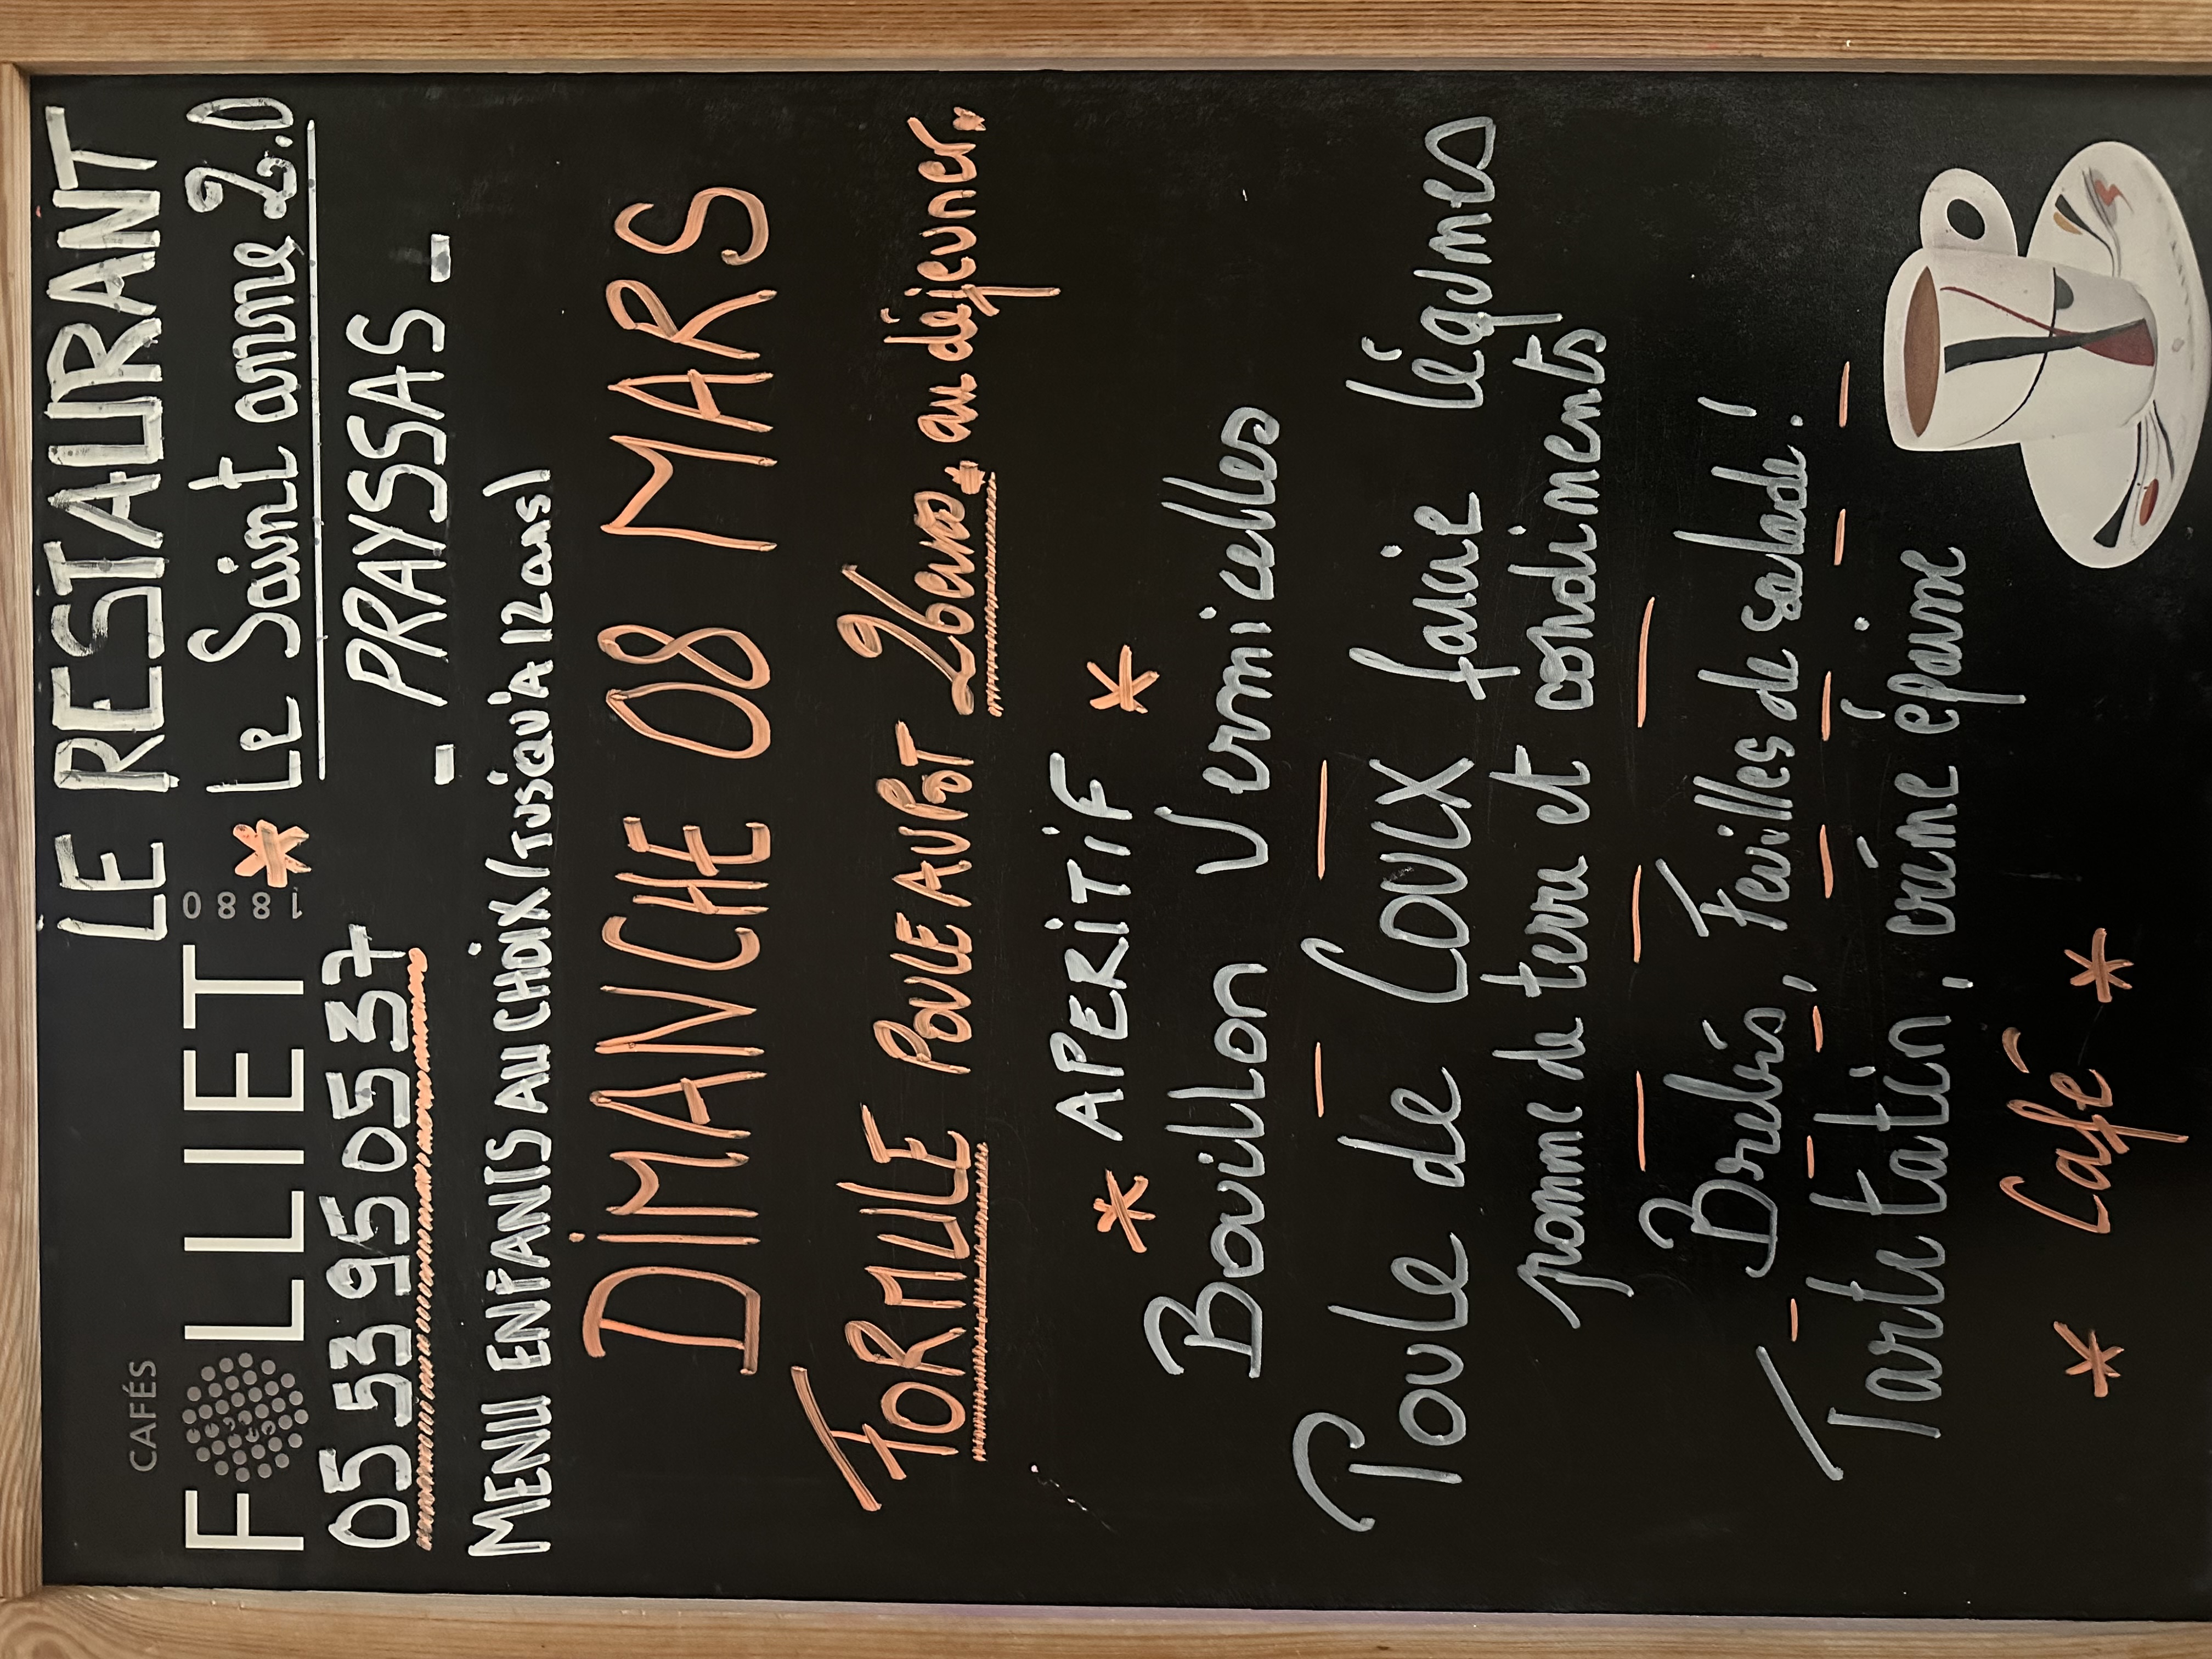 LE RESTAURANT
CAFÉS
FOLLIET 1880
* Le Saint anne 2.0
05 53 95 05 37
- PRAYSSAS -
MENU ENFANTS AU CHOIX (JUSQU'A 12 ans)
DIMANCHE 08 MARS
FORMULE POULE AU POT 26euros * au déjeuner *
* APERITIF *
Bouillon Vermicelles
Poule de Coulx farcie légumes
pomme de terre et condiments
Brebis, Feuilles de salade !
Tarte tatin, crème épaisse
* Café *